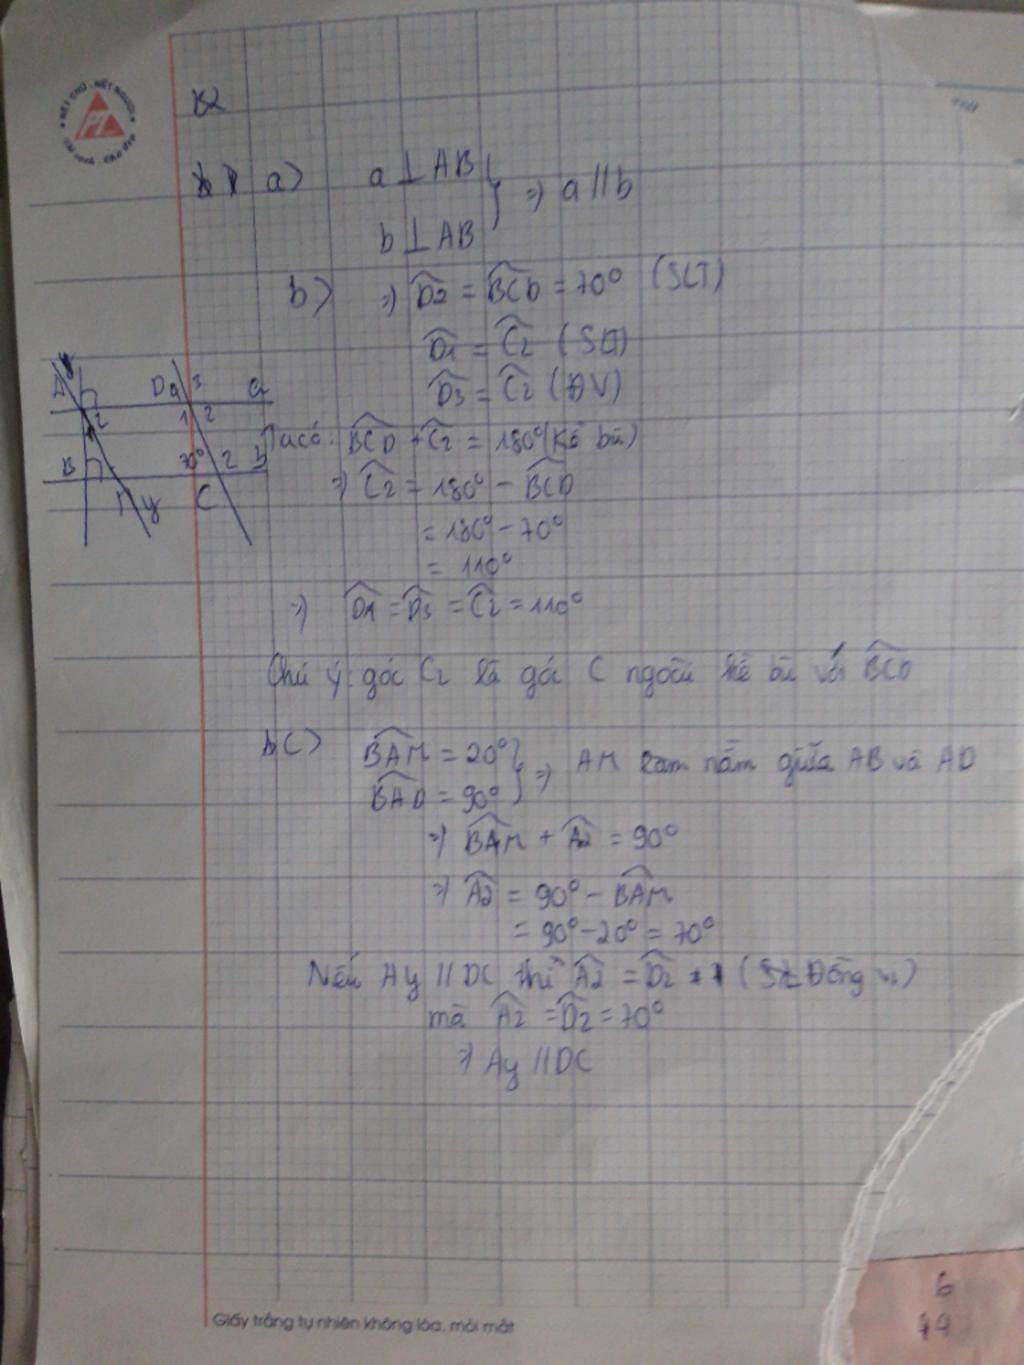 NÉT CHỮ - NẾT NGƯỜI
a) a ⊥ AB
b ⊥ AB
} => a // b
b) => D2 = BCD = 70° (SLT)
D1 = C2 (SLT)
D3 = C2 (ĐV)
A D 4 3 a
2 1 2
Ta có: BCD + C2 = 180° (Kề bù)
B 70° 2 b
=> C2 = 180° - BCD
M y C
= 180° - 70°
= 110°
=> D1 = D3 = C2 = 110°
Chú ý: góc C2 là góc C ngoài kề bù với BCD
c) BAM = 20°
BAD = 90°
} => AM nằm giữa AB và AD
=> BAM + A2 = 90°
=> A2 = 90° - BAM
= 90° - 20° = 70°
Nếu Ay // DC thì A2 = D2 (Đồng vị)
mà A2 = D2 = 70°
=> Ay // DC
Giấy trắng tự nhiên không lóa, mỏi mắt
6
49